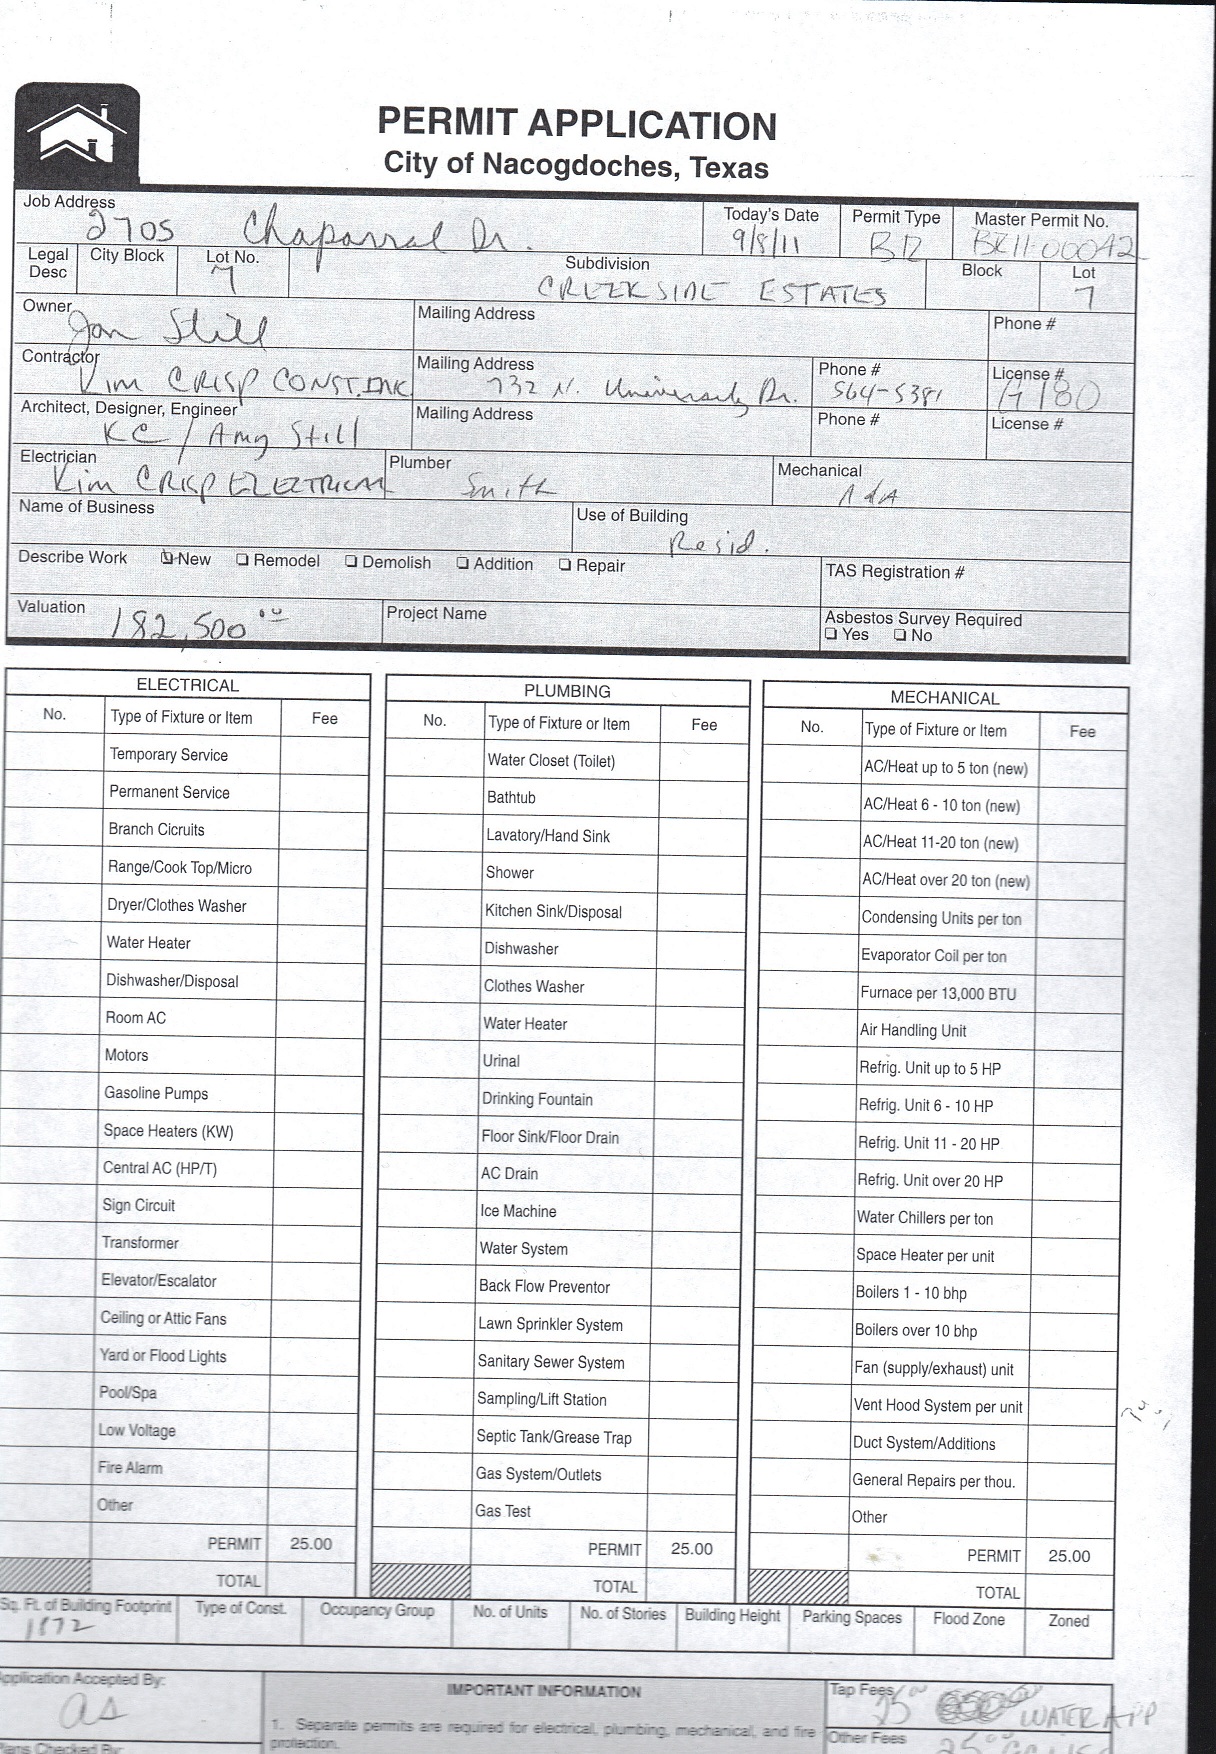 PERMIT APPLICATION
City of Nacogdoches, Texas
Job Address
2705 Chaparral Dr.
Today's Date
9/8/11
Permit Type
Master Permit No.
BR11-00042
Legal Desc
City Block
Lot No.
7
Subdivision
CREEKSIDE ESTATES
Block
Lot
7
Owner
Jon Still
Mailing Address
Phone #
Contractor
Kim CRISP CONST. INC
Mailing Address
732 N. University Dr.
Phone #
564-5381
License #
180
Architect, Designer, Engineer
KC / Amy Still
Mailing Address
Phone #
License #
Electrician
Kim CRISP ELECTRICAL
Plumber
Smith
Mechanical
Name of Business
Use of Building
Resid.
Describe Work New Remodel Demolish Addition Repair
TAS Registration #
Valuation
182,500.00
Project Name
Asbestos Survey Required
Yes No
ELECTRICAL
No. Type of Fixture or Item Fee
Temporary Service
Permanent Service
Branch Cicruits
Range/Cook Top/Micro
Dryer/Clothes Washer
Water Heater
Dishwasher/Disposal
Room AC
Motors
Gasoline Pumps
Space Heaters (KW)
Central AC (HP/T)
Sign Circuit
Transformer
Elevator/Escalator
Ceiling or Attic Fans
Yard or Flood Lights
Pool/Spa
Low Voltage
Fire Alarm
Other
PERMIT 25.00
TOTAL
PLUMBING
No. Type of Fixture or Item Fee
Water Closet (Toilet)
Bathtub
Lavatory/Hand Sink
Shower
Kitchen Sink/Disposal
Dishwasher
Clothes Washer
Water Heater
Urinal
Drinking Fountain
Floor Sink/Floor Drain
AC Drain
Ice Machine
Water System
Back Flow Preventor
Lawn Sprinkler System
Sanitary Sewer System
Sampling/Lift Station
Septic Tank/Grease Trap
Gas System/Outlets
Gas Test
PERMIT 25.00
TOTAL
MECHANICAL
No. Type of Fixture or Item Fee
AC/Heat up to 5 ton (new)
AC/Heat 6 - 10 ton (new)
AC/Heat 11-20 ton (new)
AC/Heat over 20 ton (new)
Condensing Units per ton
Evaporator Coil per ton
Furnace per 13,000 BTU
Air Handling Unit
Refrig. Unit up to 5 HP
Refrig. Unit 6 - 10 HP
Refrig. Unit 11 - 20 HP
Refrig. Unit over 20 HP
Water Chillers per ton
Space Heater per unit
Boilers 1 - 10 bhp
Boilers over 10 bhp
Fan (supply/exhaust) unit
Vent Hood System per unit
Duct System/Additions
General Repairs per thou.
Other
PERMIT 25.00
TOTAL
Sq. Ft. of Building Footprint
1872
Type of Const.
Occupancy Group
No. of Units
No. of Stories
Building Height
Parking Spaces
Flood Zone
Zoned
Application Accepted By:
as
IMPORTANT INFORMATION
1. Separate permits are required for electrical, plumbing, mechanical, and fire
protection.
Tap Fees
25 00
WATER APP
Plans Checked By:
Other Fees
25 00